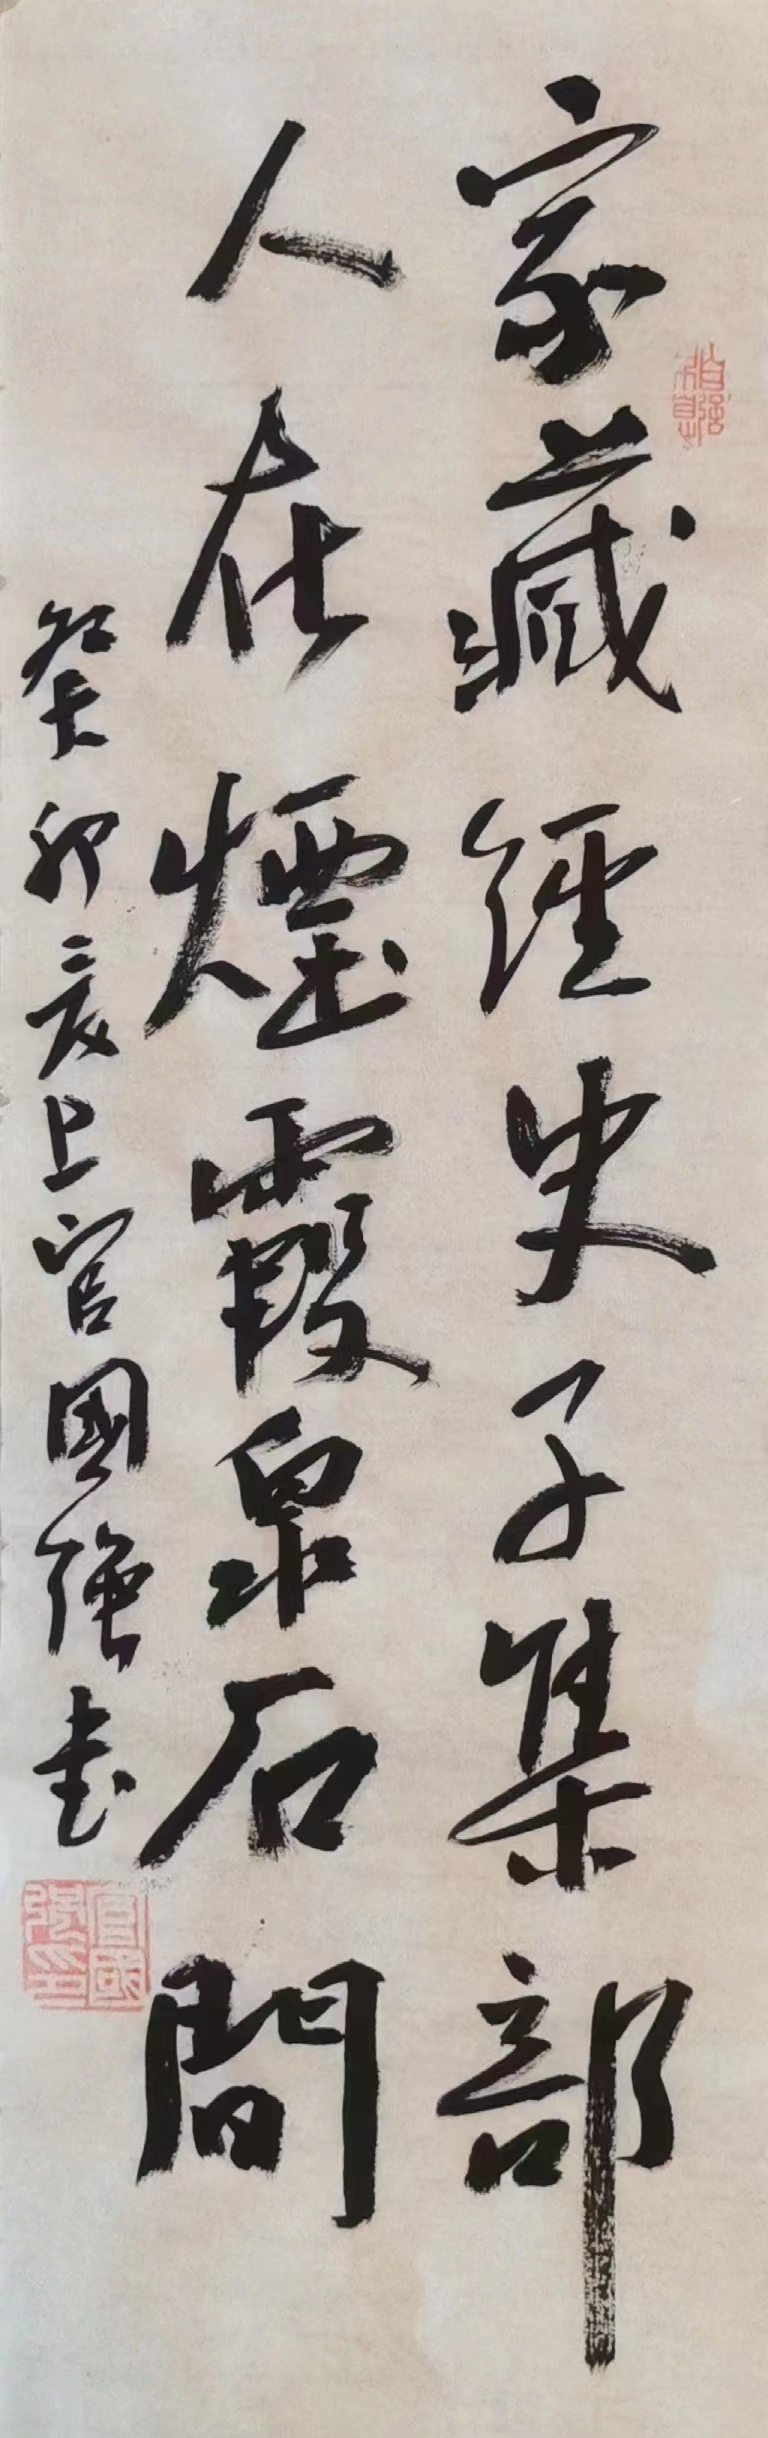 家藏經史子集部
人在煙霞泉石間
癸卯夏上官國強書
自強不息